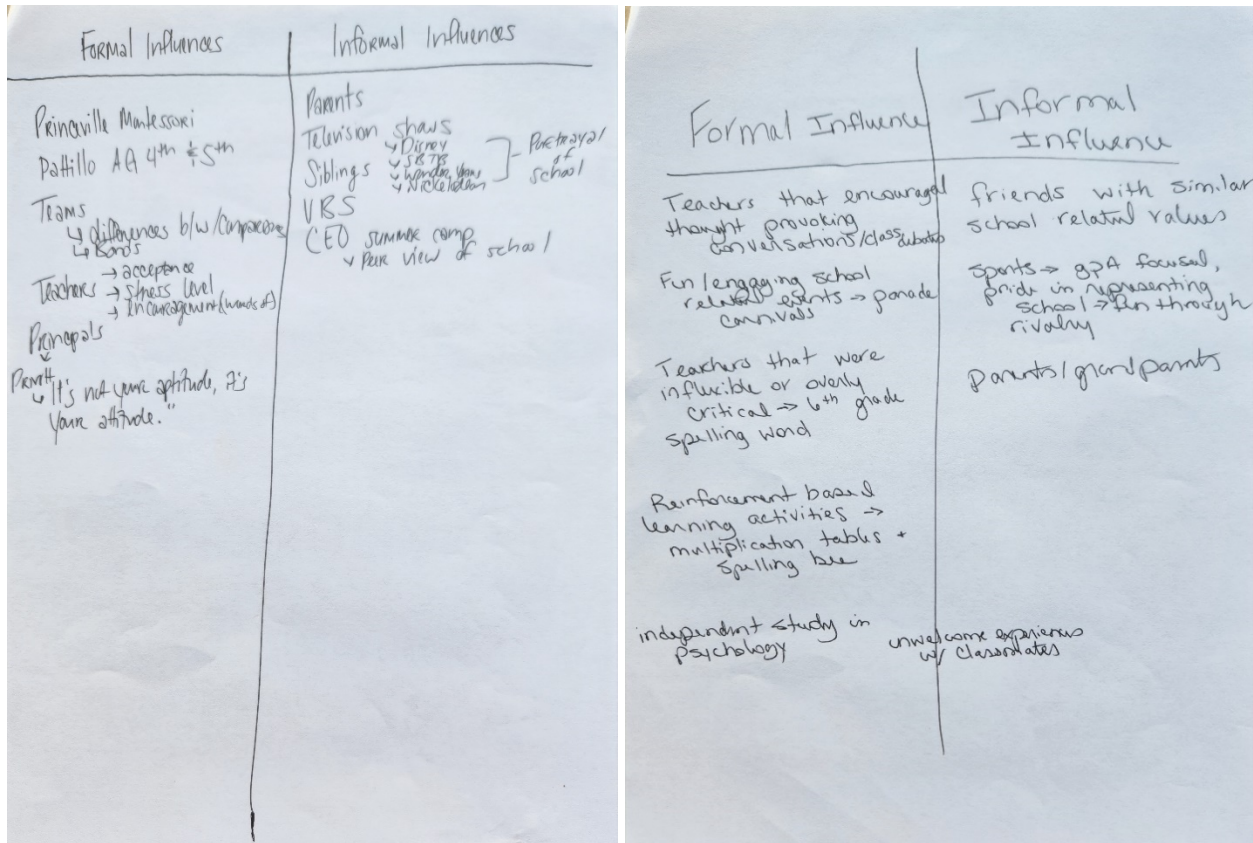 Formal Influences
Princeville Montessori
Pattillo AG 4th & 5th
Teams
↳ differences b/w/
↳ Bonds
→ acceptance
Teachers → stress level
→ Encouragement (words of)
Principals
↳ "It's not your aptitude, it's
your attitude."
Informal Influences
Parents
Television shows
↳ Disney
↳ SBTB
↳ Wonder Years
↳ Nickelodeon
Portrayal
of
school
Siblings
VBS
CEO summer camp
↳ Peer view of school
Formal Influence
Teachers that encouraged
thought provoking
conversations/class debates
Fun/engaging school
related events → parade
carnivals
Teachers that were
inflexible or overly
critical → 6th grade
spelling word
Reinforcement based
learning activities →
multiplication tables +
spelling bee
independent study in
psychology
Informal
Influence
friends with similar
school related values
Sports → gpA focused,
pride in representing
school → fun through
rivalry
parents/grandparents
unwelcome experiences
w/ classmates